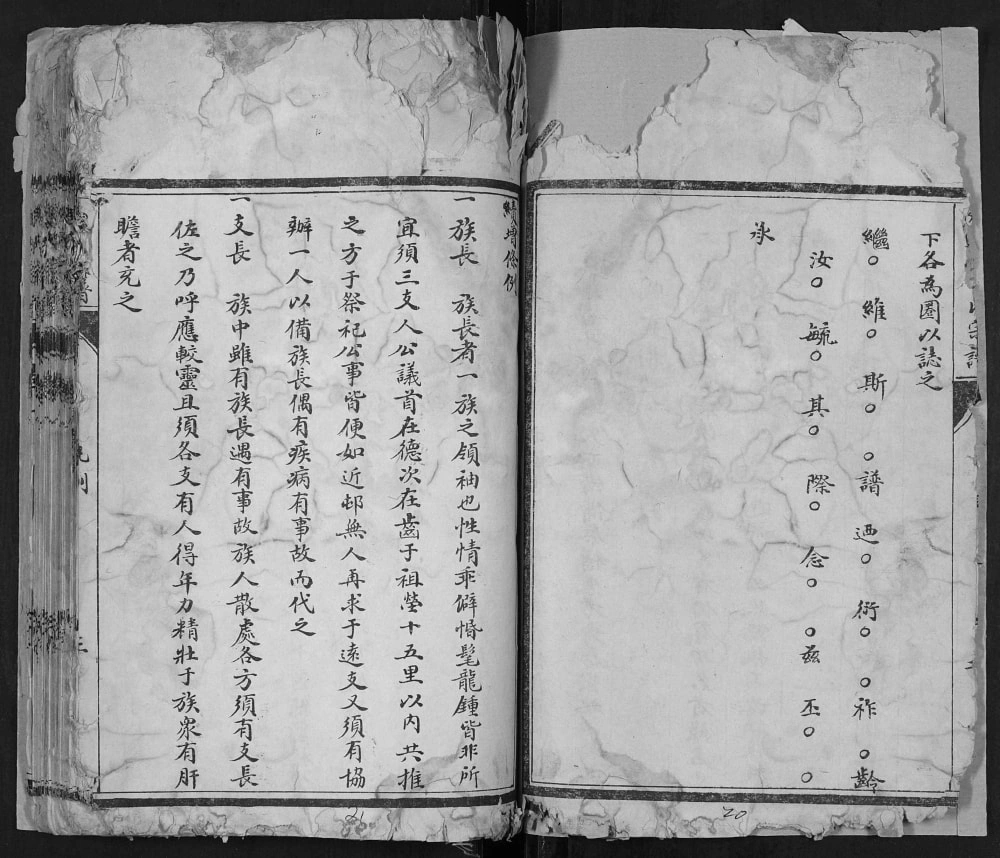 下各為圈以誌之
繼○維○斯○○譜迺○衍○○祚○齡
汝○毓○其○際○念○○茲丕○○
承
宗譜
續增條例
一族長　族長者一族之領袖也性情乖僻惛髦龍鍾皆非所
宜須三支人公議首在德次在齒于祖塋十五里以內共推
之方于祭祀公事皆便如近邨無人再求于遠支又須有協
辦一人以備族長偶有疾病有事故而代之
一支長　族中雖有族長遇有事故族人散處各方須有支長
佐之乃呼應較靈且須各支有人得年力精壯于族衆有肝
膽者充之
20
21